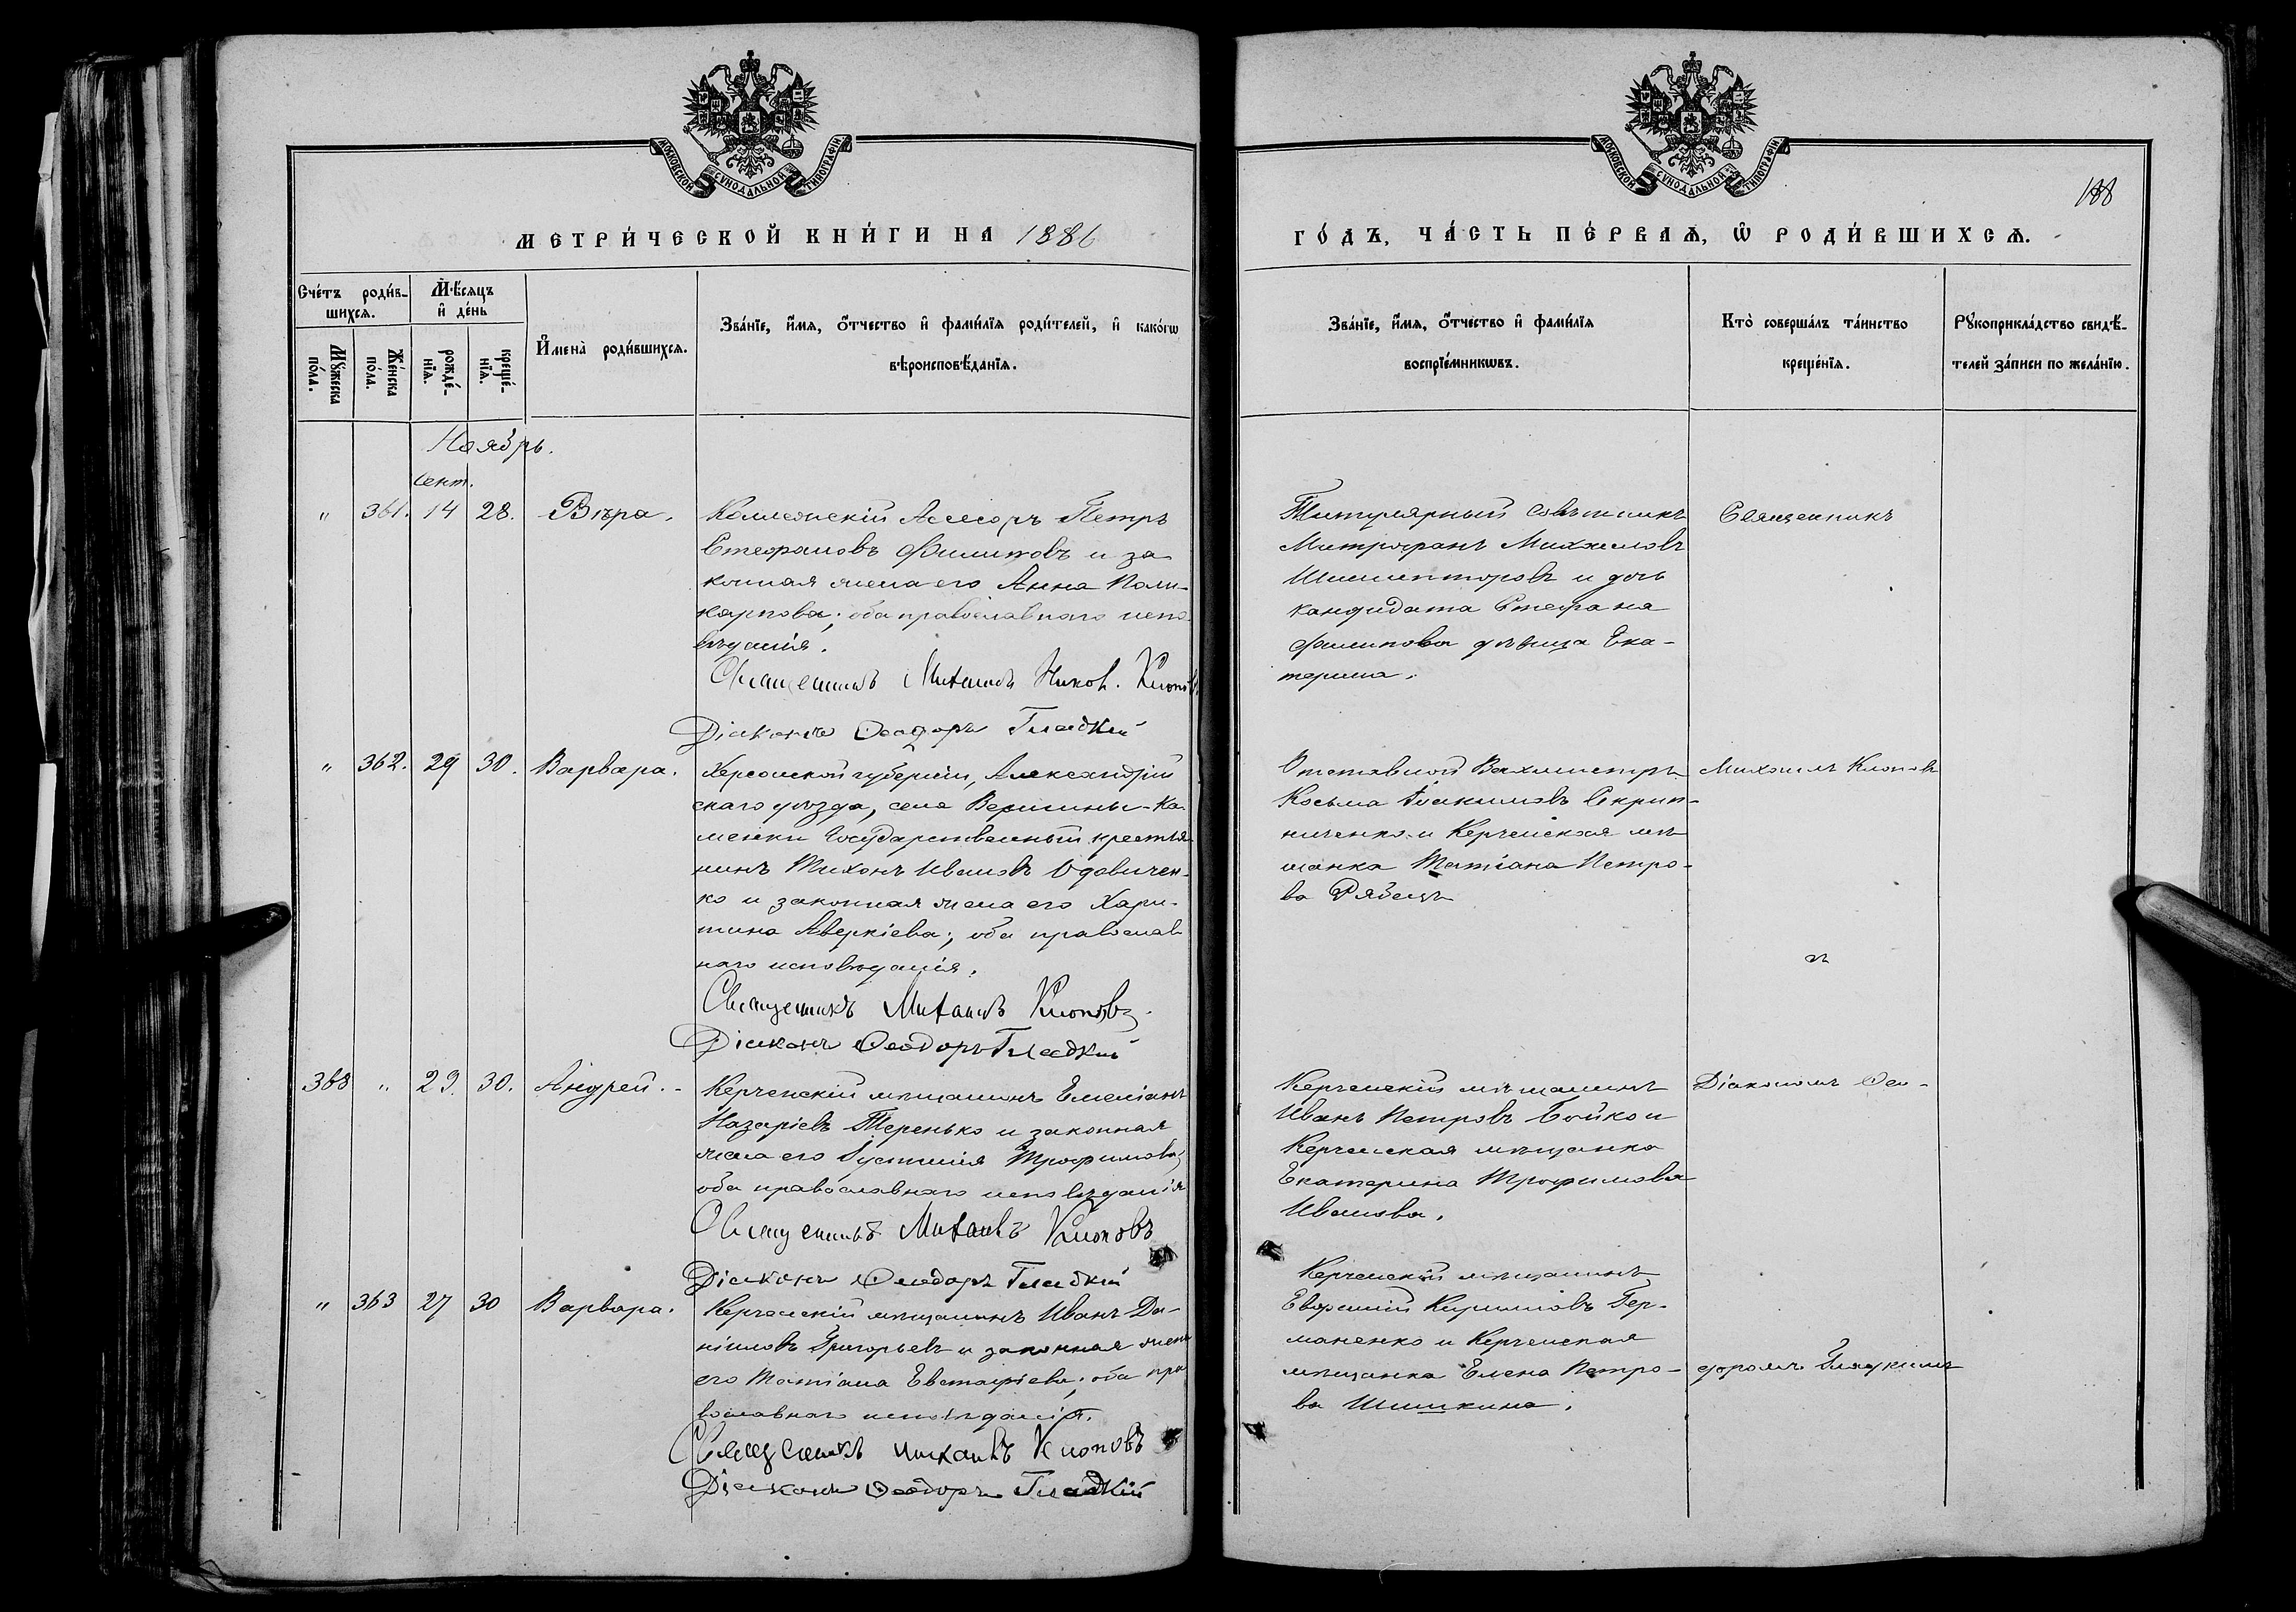 МОСКОВСКОЙ СУНОДАЛЬНОЙ ТИПОГРАФІИ
МЕТРИ́ЧЕСКОЙ КНИ́ГИ НА 1886
Сче́тъ роди́в-
шихсѧ.
Мѣ́сѧцъ
и҆ де́нь
Мꙋ́жеска
по́ла.
Же́нска
по́ла.
рожде́-
нїѧ.
креще́-
нїѧ.
И҆мена̀ роди́вшихсѧ.
Зва́нїе, и҆́мѧ, ѻ҆́тчество и҆ фами́лїѧ роди́телей, и҆ како́гѡ
вѣроисповѣ́данїѧ.
Ноябрь.
Сент.
" 361. 14 28. Вѣра.
Коллежскій Ассесоръ Петръ
Стефановъ Филиповъ и за
конная жена его Анна Поли-
карпова; оба православнаго испо
вѣданія.
Священникъ Михаилъ Никол. Клопов
Діаконъ Ѳеодоръ Гладкій
" 362. 29 30. Варвара.
Херсонской губерніи, Александрій
скаго уѣзда, села Вершины-Ка
менки Государственный крестья
нинъ Тихонъ Ивановъ Удовичен-
ко и законная жена его Хари-
тина Аверкіева; оба православ
наго исповѣданія.
Священникъ Михаилъ Клоповъ
Діаконъ Ѳеодоръ Гладкій
368 " 29. 30. Андрей.
Керченскій мѣщанинъ Емеліанъ
Назаріевъ Теренько и законная
жена его Іустинія Трофимова;
оба православнаго исповѣданія
Священникъ Михаилъ Клоповъ
Діаконъ Ѳеодоръ Гладкій
" 363 27 30 Варвара.
Керченскій мѣщанинъ Иванъ Да-
ніиловъ Григорьевъ и законная жена
его Татіана Евстафіева; оба пра
вославнаго исповѣданія.
Священникъ Михаилъ Клоповъ
Діаконъ Ѳеодоръ Гладкій
МОСКОВСКОЙ СУНОДАЛЬНОЙ ТИПОГРАФІИ
188
ГО́ДЪ, ЧА́СТЬ ПЕ́РВАѦ, Ѡ҆ РОДИ́ВШИХСѦ.
Зва́нїе, и҆́мѧ, ѻ҆́тчество и҆ фами́лїѧ
воспрїе́мникѡвъ.
Кто̀ соверша́лъ та́инство
креще́нїѧ.
Рꙋкоприкла́дство свидѣ́-
телей за́писи по жела́нїю.
Титулярный Совѣтникъ
Митрофанъ Михаиловъ
и дочь
кандидата Стефана
Филипова дѣвица Ека-
терина.
Священникъ
Отставной Вахмистръ
Косьма Іоакимовъ Скрип-
ниченко и Керченская мѣ
щанка Татіана Петро-
ва Рябецъ
Михаилъ Клоповъ
и
Керченскій мѣщанинъ
Иванъ Петровъ Бойко и
Керченская мѣщанка
Екатерина Трофимова
Иванова.
Діакономъ Ѳео-
Керченскій мѣщанинъ
Евфимій Кириловъ Гер-
маненко и Керченская
мѣщанка Елена Петро-
ва Шишкина.
доромъ Гладкимъ